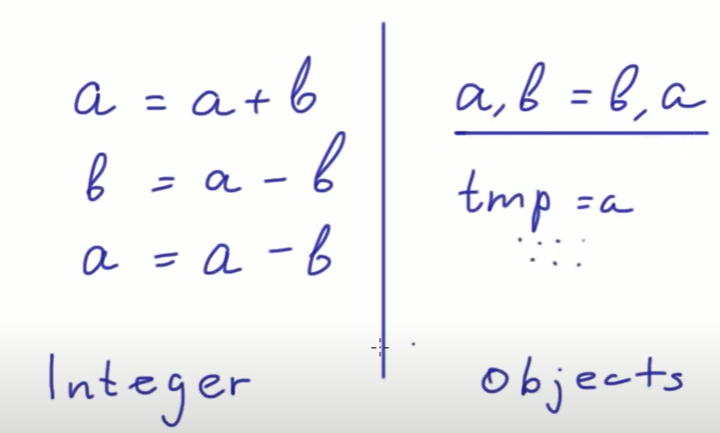 a = a + b
b = a - b
a = a - b
Integer
a, b = b, a
tmp = a
objects